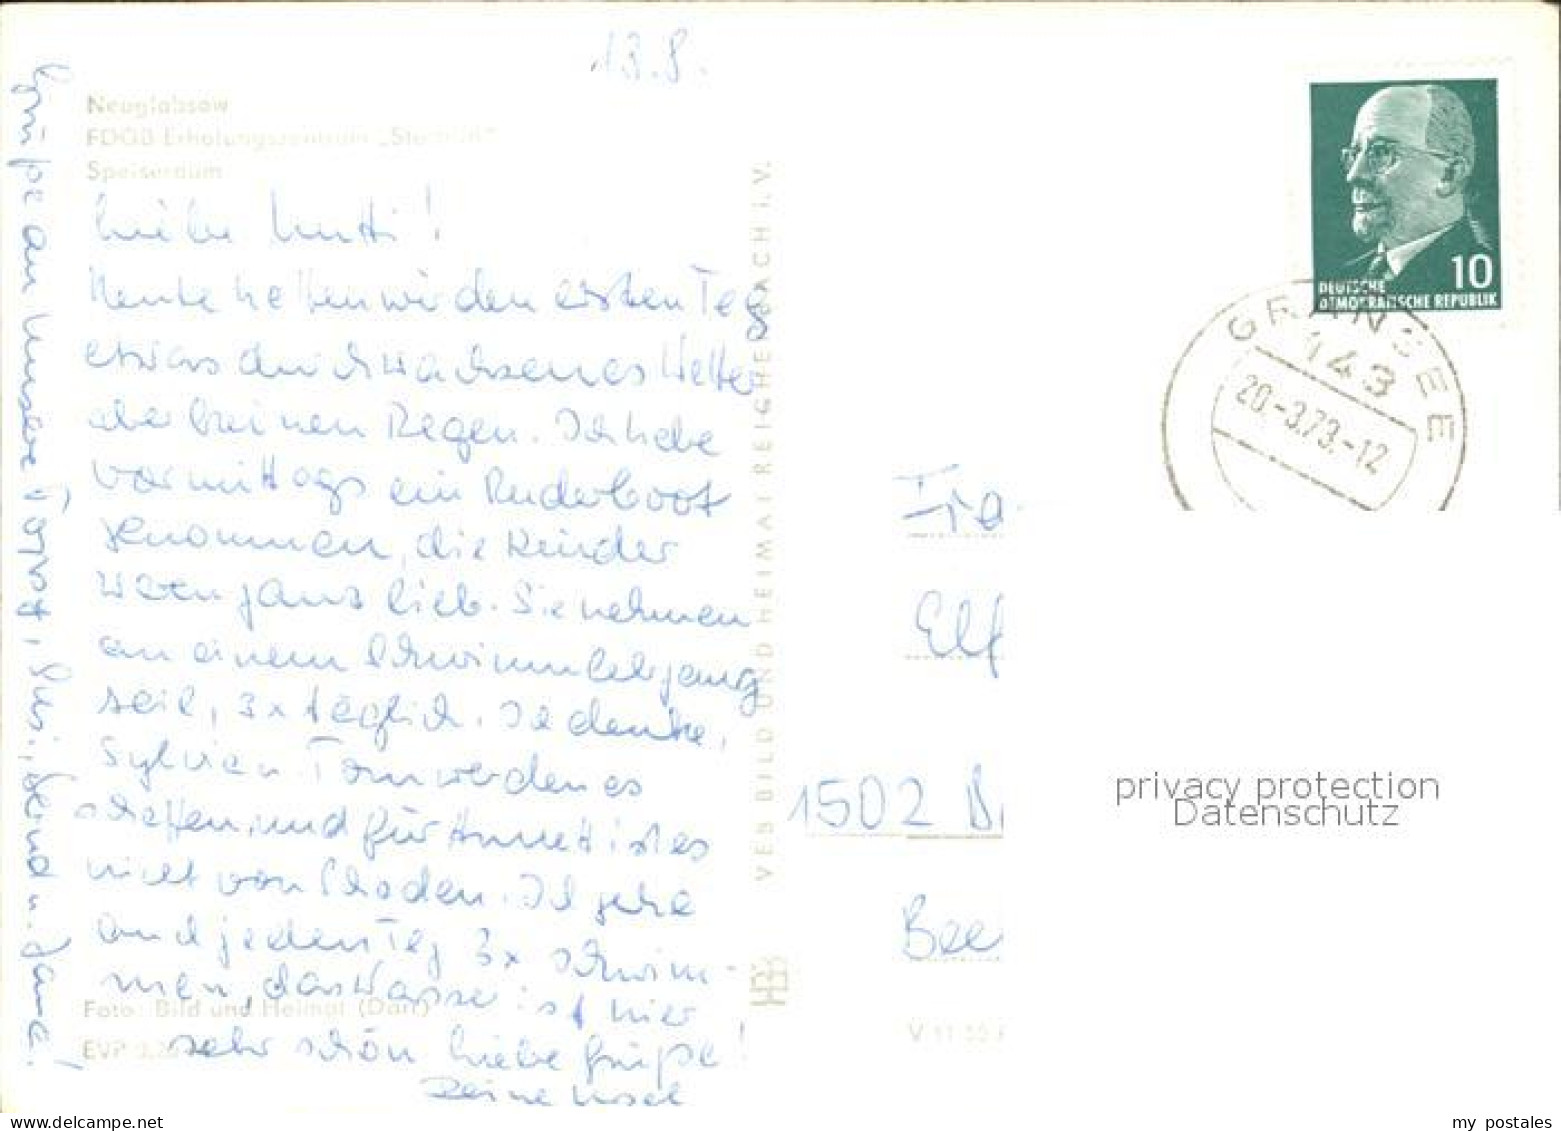 13.8.
Neuglobsow
FDGB Erholungszentrum „Stechlin“
Speiseraum
Liebe Mutti!
Heute hatten wir den ersten Tag
etwas durchwachsenes Wetter
aber keinen Regen. Ich habe
vormittags ein Ruderboot
genommen, die Kinder
waren ganz lieb. Sie nehmen
an einem Schwimmlehrgang
teil, 3x täglich. Ich denke,
Sylvia u. Tom werden es
schaffen, und für Annett ist es
nicht von Schaden. Ich gehe
auch jeden Tag 3x schwim-
men, das Wasser ist hier
sehr schön Liebe Grüße!
Deine Ursel
Grüße an Musere
VEB BILD UND HEIMAT REICHENBACH I. V.
Foto: Bild und Heimat (Darr)
EVP
V 11 50
DEUTSCHE
DEMOKRATISCHE REPUBLIK
10
GRANSEE
143
20.-3.73.-12
Fra
Elf
1502
Bee
privacy protection
Datenschutz
my postales
delcampe.net